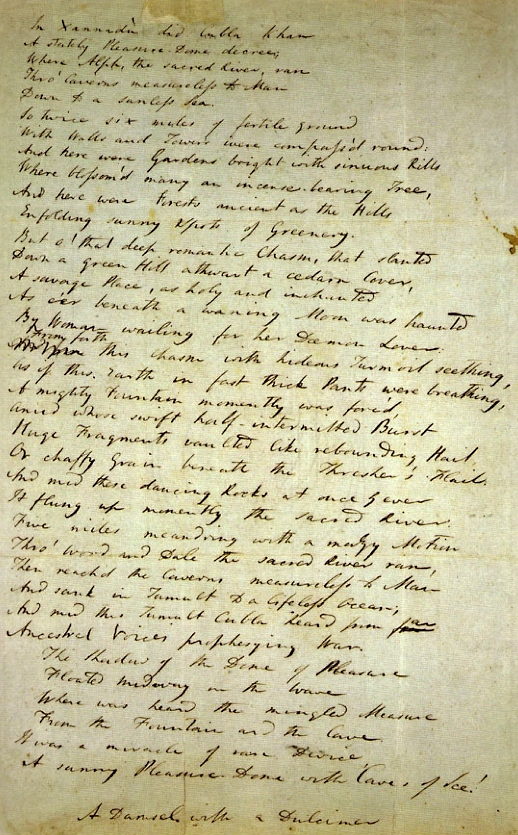 In Xannadù did Cubla Khan
A stately Pleasure-Dome decree;
Where Alph, the sacred River, ran
Thro' Caverns measureless to Man
Down to a sunless Sea.
So twice six miles of fertile ground
With Walls and Towers were compass'd round:
And here were Gardens bright with sinuous Rills
Where blossom'd many an incense-bearing Tree,
And here were Forests ancient as the Hills
Enfolding sunny Spots of Greenery.
But o! that deep romantic Chasm, that slanted
Down a green Hill athwart a cedarn Cover,
A savage Place, as holy and inchanted
As e'er beneath a waning Moon was haunted
By Woman wailing for her Daemon Lover:
From forth
this Chasm with hideous Turmoil seething,
As if this Earth in fast thick Pants were breathing,
A mighty Fountain momently was forc'd,
Amid whose swift half-intermitted Burst
Huge Fragments vaulted like rebounding Hail
Or chaffy Grain beneath the Thresher's Flail.
And mid these dancing Rocks at once & ever
It flung up momently the sacred River.
Five miles meandring with a mazy Motion
Thro' Wood and Dale the sacred River ran,
Then reach'd the Caverns measureless to Man
And sank in Tumult to a lifeless Ocean;
And mid this Tumult Cubla heard from far
Ancestral Voices prophesying War.
The Shadow of the Dome of Pleasure
Floated midway on the Wave
Where was heard the mingled Measure
From the Fountain and the Cave.
It was a miracle of rare Device
A sunny Pleasure-Dome with Caves of Ice!
A Damsel with a Dulcimer